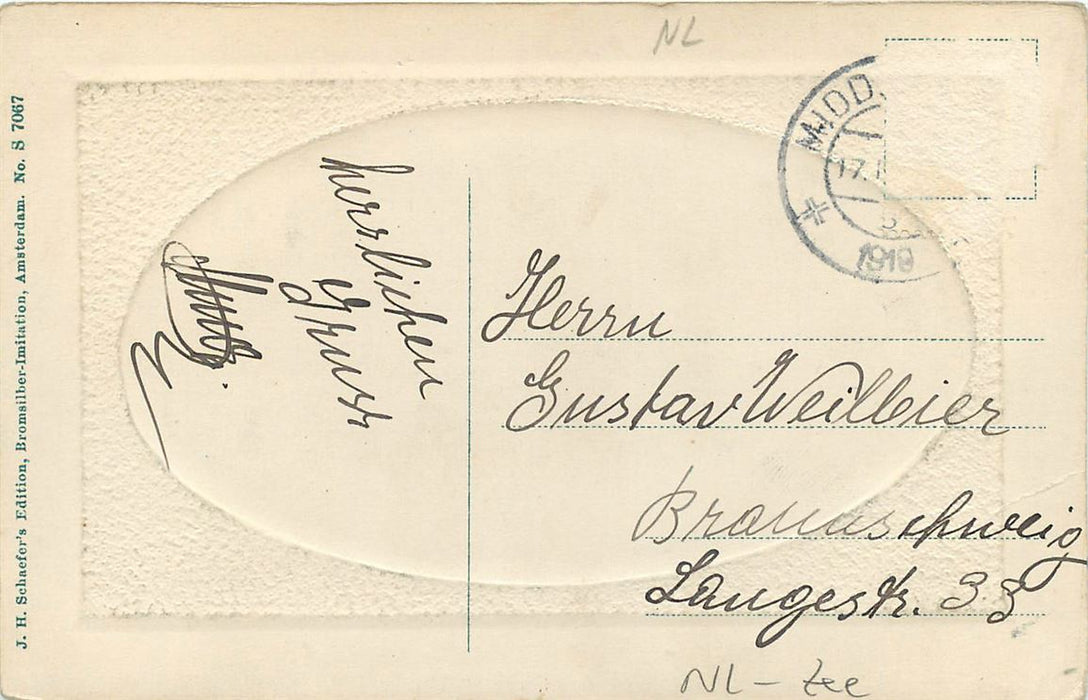 NL
J. H. Schaefer's Edition, Bromsilber-Imitation, Amsterdam. No. S 7067
MIDD
17.1
1919
herzlichen
Gruss
Herrn
Gustav Weilbier
Braunschweig
Langestr. 33
NL - Zee